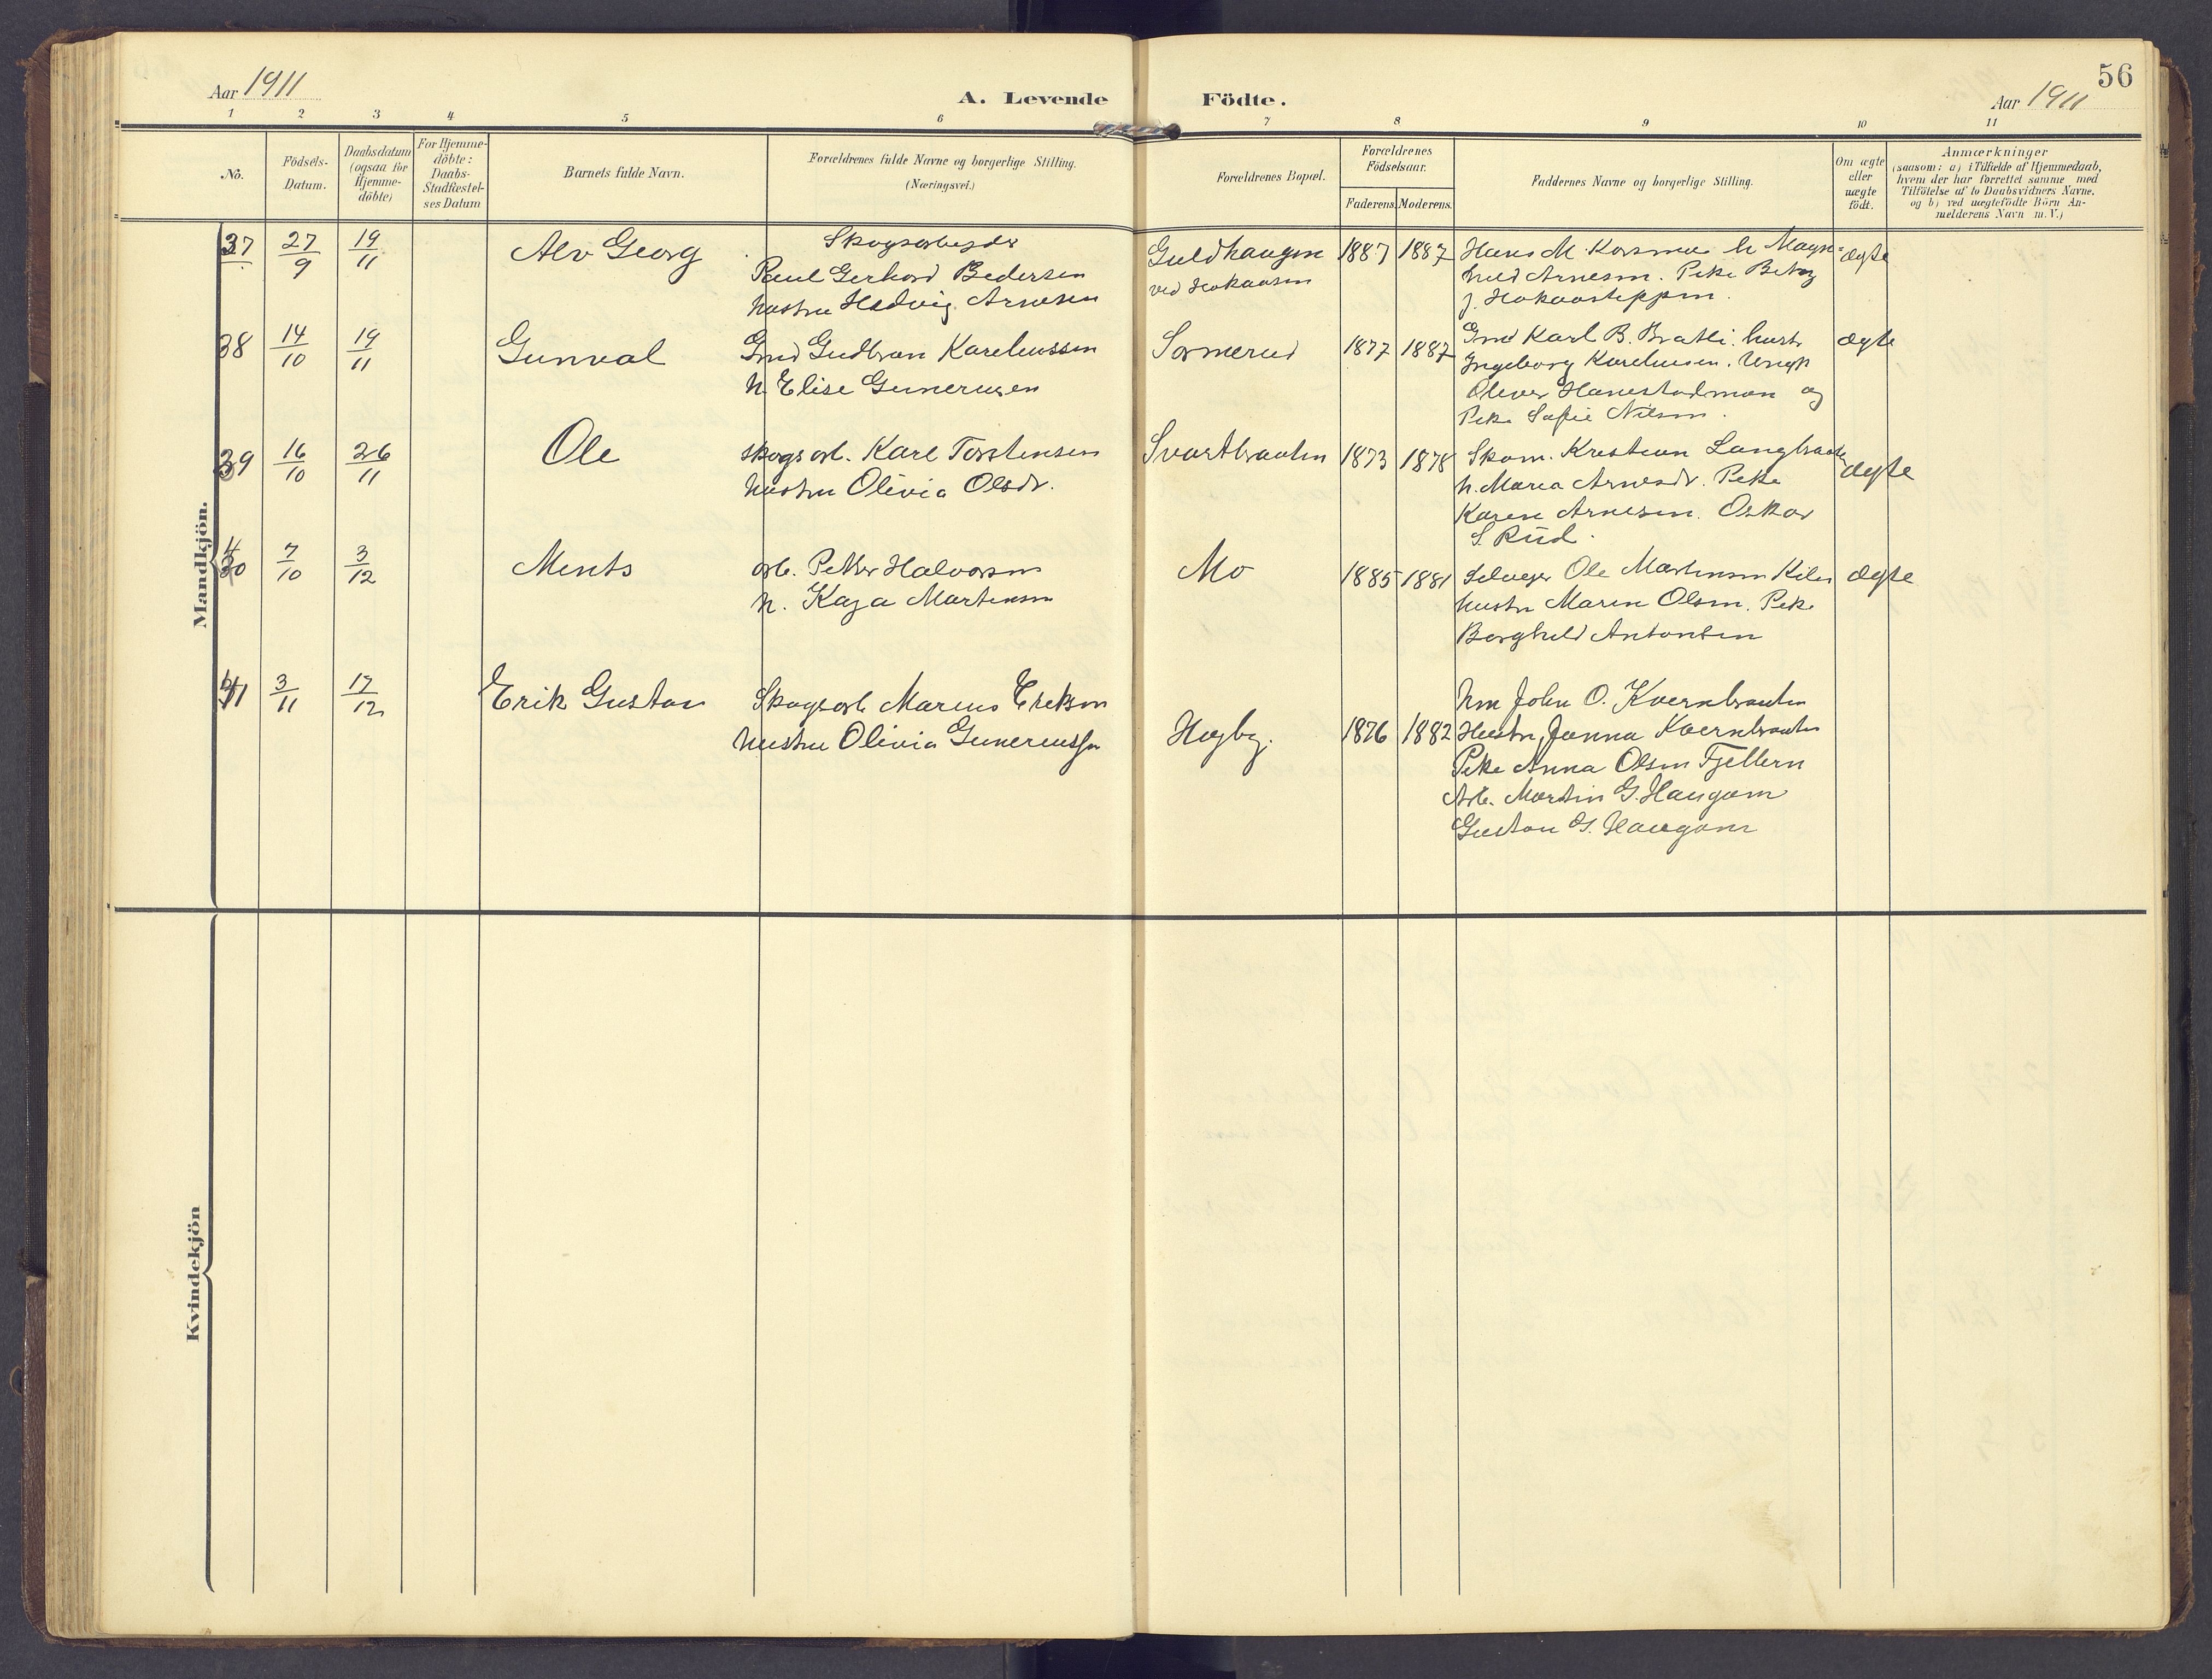 Aar 1911
A. Levende Födte.
Aar 1911
56
1 2 3 4 5 6 7 8 9 10 11
No.
Födsels-
Datum.
Daabsdatum
(ogsaa for
Hjemme-
döbte)
For Hjemme-
döbte:
Daabs-
Stadfæstel-
ses Datum
Barnets fulde Navn.
Forældrenes fulde Navne og borgerlige Stilling.
(Næringsvei.)
Forældrenes Bopæl.
Forældrenes
Födselsaar.
Faderens. Moderens.
Faddernes Navne og borgerlige Stilling.
Om ægte
eller
uægte
födt.
Anmærkninger
(saasom: a) i Tilfælde af Hjemmedaab,
hvem der har forrettet samme med
Tilföielse af to Daabsvidners Navne,
og b) ved uægtefödte Börn An-
melderens Navn m. V.)
Mandkjön.
37 27/9 19/11 Alv Georg
Skogsarbeyder
Paul Gerhard Pedersen
hustru Hedvig Arnesen
Guldhaugen
ved Hokaasen
1887 1887
Hans M. Korsmoe h Magn-
hild Arnesen. Pike
J. Hokaasteppen.
ægte
38 14/10 19/11 Gunval
Gmd Gudbran Kareliussen
h. Elise Gunerusen
Sormerud
1877 1887
Gmd Karl B. Bratli. hustr
Ingeborg Kareliusen. Ungk
Oliver Hanestadmoen og
Pike Sofie Nilsen.
ægte
39 16/10 26/11 Ole
skogsarb. Karl Torstensen
hustru Olivia Olsdr.
Svartbraaten
1873 1878
Skom. Kristian Langbraaten
h. Maria Arnesdr. Pike
Karen Arnesen. Oskar
S. Rud.
ægte
40 7/10 3/12 Ments
arb. Petter Halvorsen
h. Kaja Martensen
Mo
1885 1881
Selveger Ole Martensen Kilen
hustru Maren Olsen. Pike
Borghild Antonsen
ægte
41 3/11 17/12 Erik Gustav
Skogsarb Marius Eriksen
hustru Olivia Gunerussen
Hugby.
1876 1882
John O. Kvernbraaten
Hustru Janna Kvernbraaten
Pike Anna Olsen Fjellern
Arb. Martin G. Haugom
Gustav G. Haugom
Kvindekjön